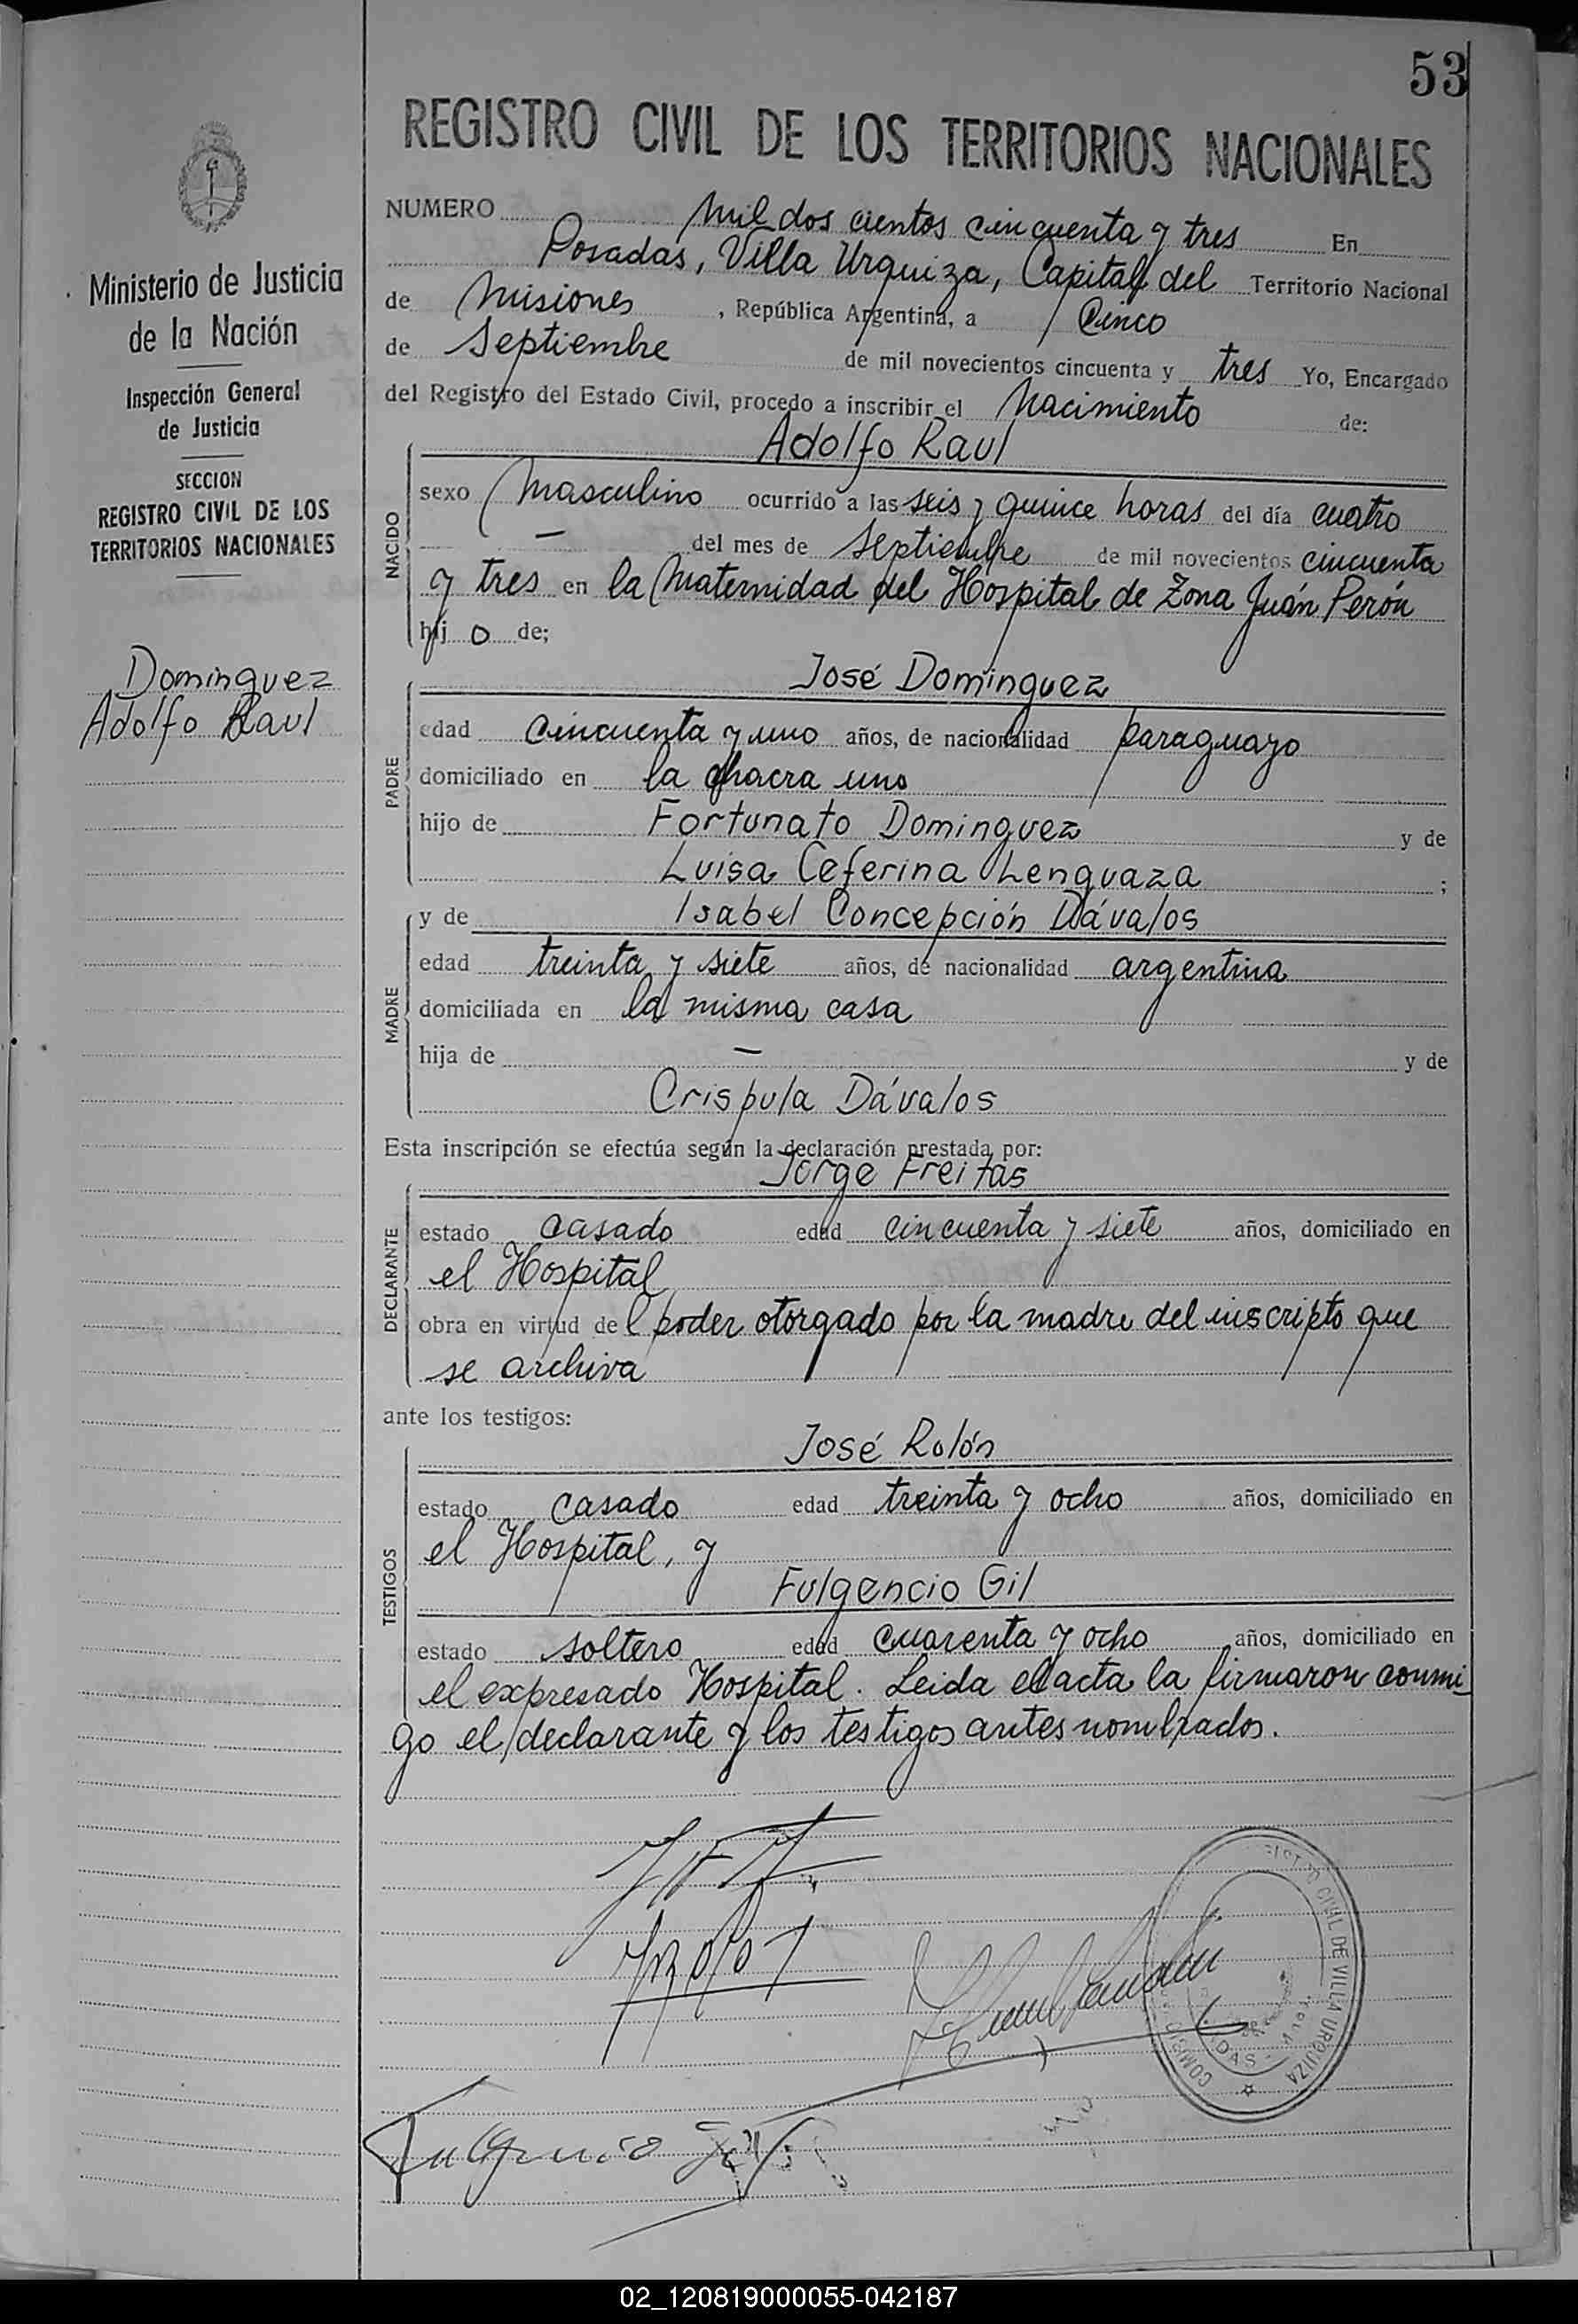 53
REGISTRO CIVIL DE LOS TERRITORIOS NACIONALES
Ministerio de Justicia
de la Nación
Inspección General
de Justicia
SECCION
REGISTRO CIVIL DE LOS
TERRITORIOS NACIONALES
Dominguez
Adolfo Raul
NUMERO Mil dos cientos cincuenta y tres En
Posadas, Villa Urquiza, Capital del Territorio Nacional
de Misiones, República Argentina, a Cinco
de Septiembre de mil novecientos cincuenta y tres Yo, Encargado
del Registro del Estado Civil, procedo a inscribir el Nacimiento de:
Adolfo Raul
NACIDO
sexo Masculino ocurrido a las seis y quince horas del día cuatro
— del mes de Septiembre de mil novecientos cincuenta
y tres en la Maternidad del Hospital de Zona Juán Perón
hij o de;
José Dominguez
PADRE
edad cincuenta y uno años, de nacionalidad paraguayo
domiciliado en la chacra uno
hijo de Fortunato Dominguez y de
Luisa Ceferina Lenguaza ;
y de Isabel Concepción Dávalos
MADRE
edad treinta y siete años, de nacionalidad argentina
domiciliada en la misma casa
hija de — y de
Crispula Dávalos
Esta inscripción se efectúa según la declaración prestada por:
Jorge Freitas
DECLARANTE
estado casado edad cincuenta y siete años, domiciliado en
el Hospital
obra en virtud del poder otorgado por la madre del inscripto que
se archiva
ante los testigos:
José Rolón
TESTIGOS
estado casado edad treinta y ocho años, domiciliado en
el Hospital, y
Fulgencio Gil
estado soltero edad cuarenta y ocho años, domiciliado en
el expresado Hospital. Leida el acta la firmaron conmi-
go el declarante y los testigos antes nombrados.
CIVIL DE VILLA URQUIZA
Fulgencio Gil
02_120819000055-042187